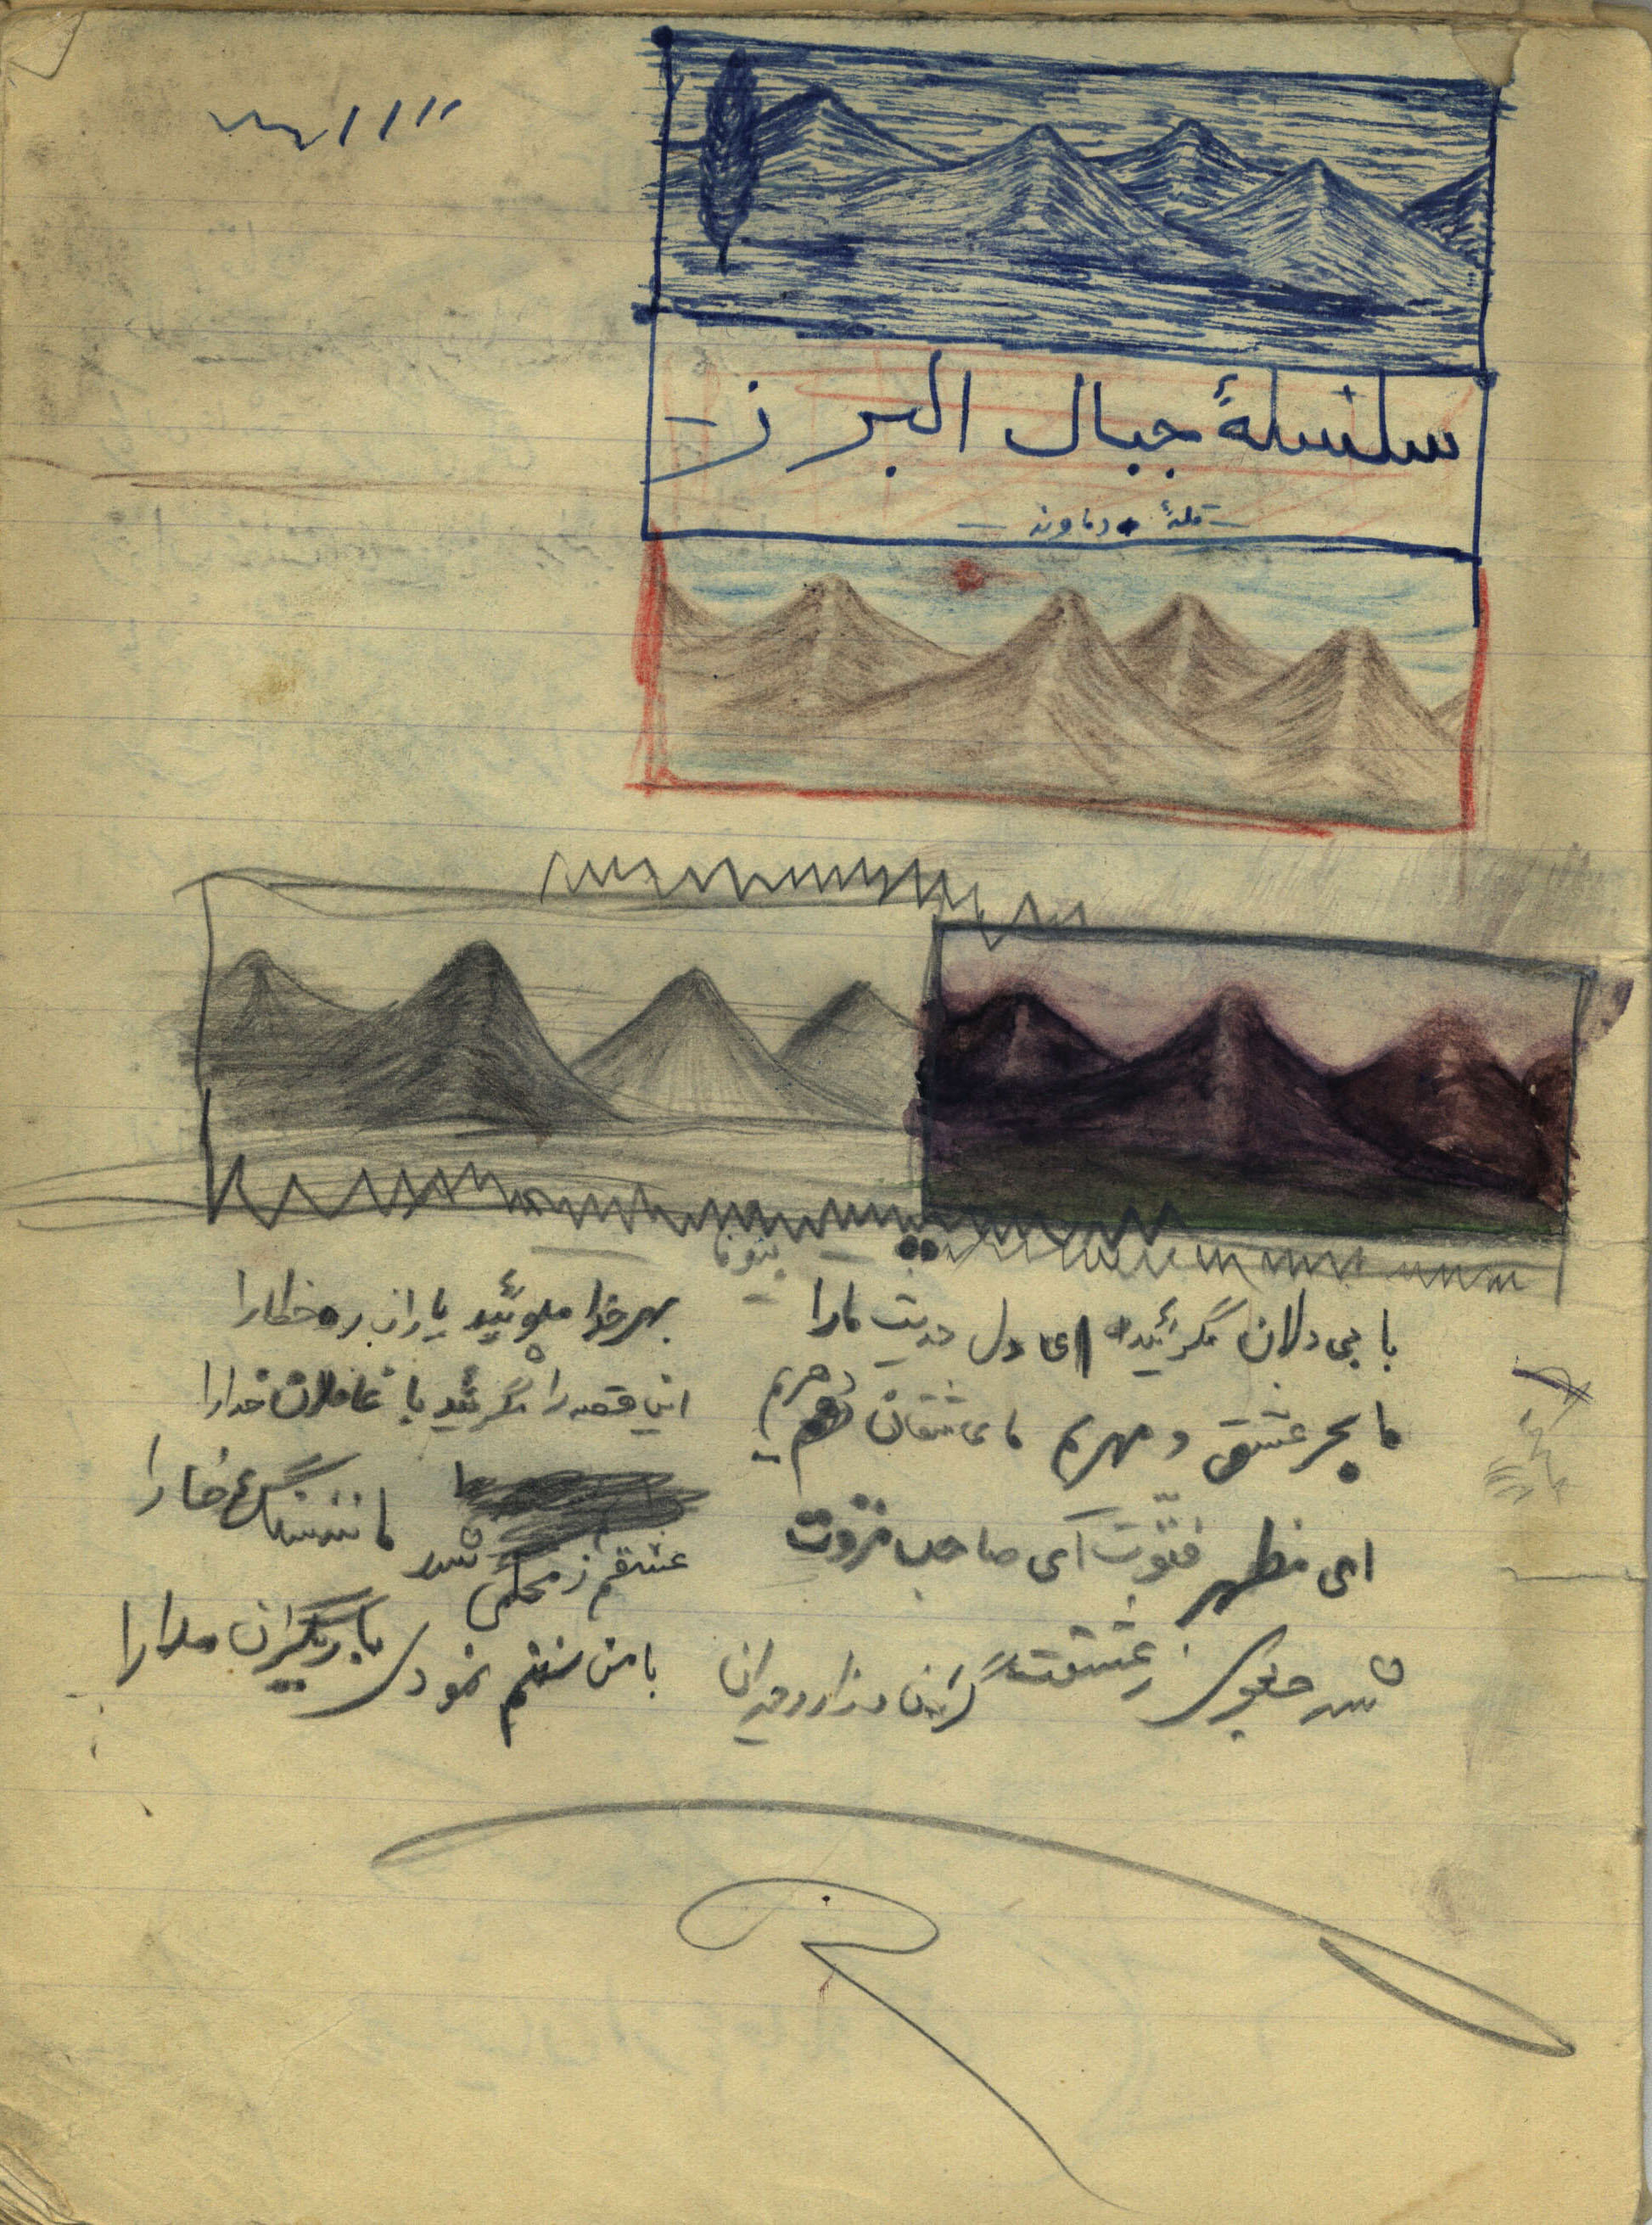 سلسلهٔ جبال البرز
قلهٔ دماوند
با بی دلان مگوئید ای دل حدیث ما را بهر خدا مپوئید یاران ره خطا را
ما بحر عشق و مهریم ما عاشقان دهریم این قصه را مگوئید با غافلان خدارا
ای مظهر فتوت ای صاحب مروت عشقم ز محکمی شد مانند سنگ خارا
شد معنوی ز عشقت با من ستم نمودی با دیگران مدارا